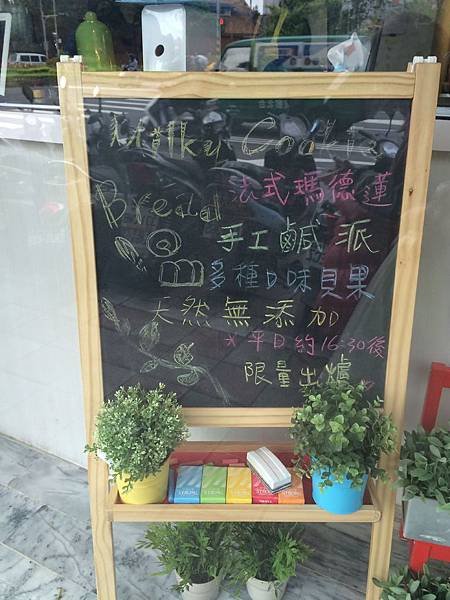 Haiku Cookie
Bread 法式瑪德蓮
手工鹹派
多種口味貝果
天然無添加
*平日約16:30後
限量出爐